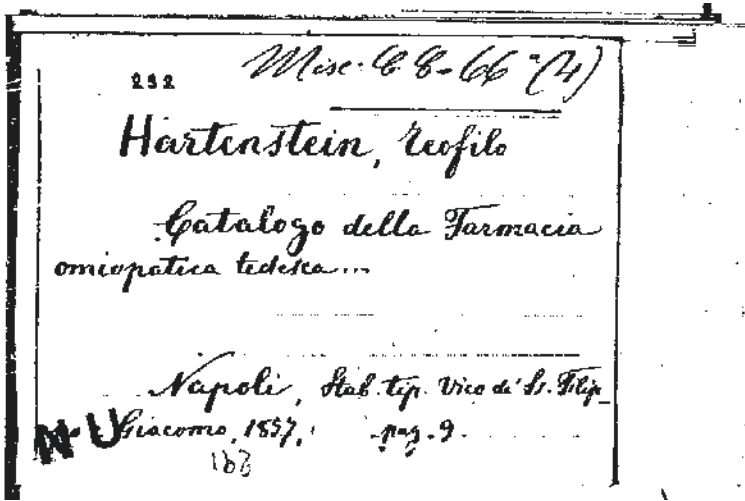 232 Misc. C. C. 66 (4)
Hartenstein, Teofilo
Catalogo della Farmacia
omiopatica tedesca...
Napoli, Stab. tip. Vico de' Ss. Filip
Giacomo, 1857, pag. 9.
NU